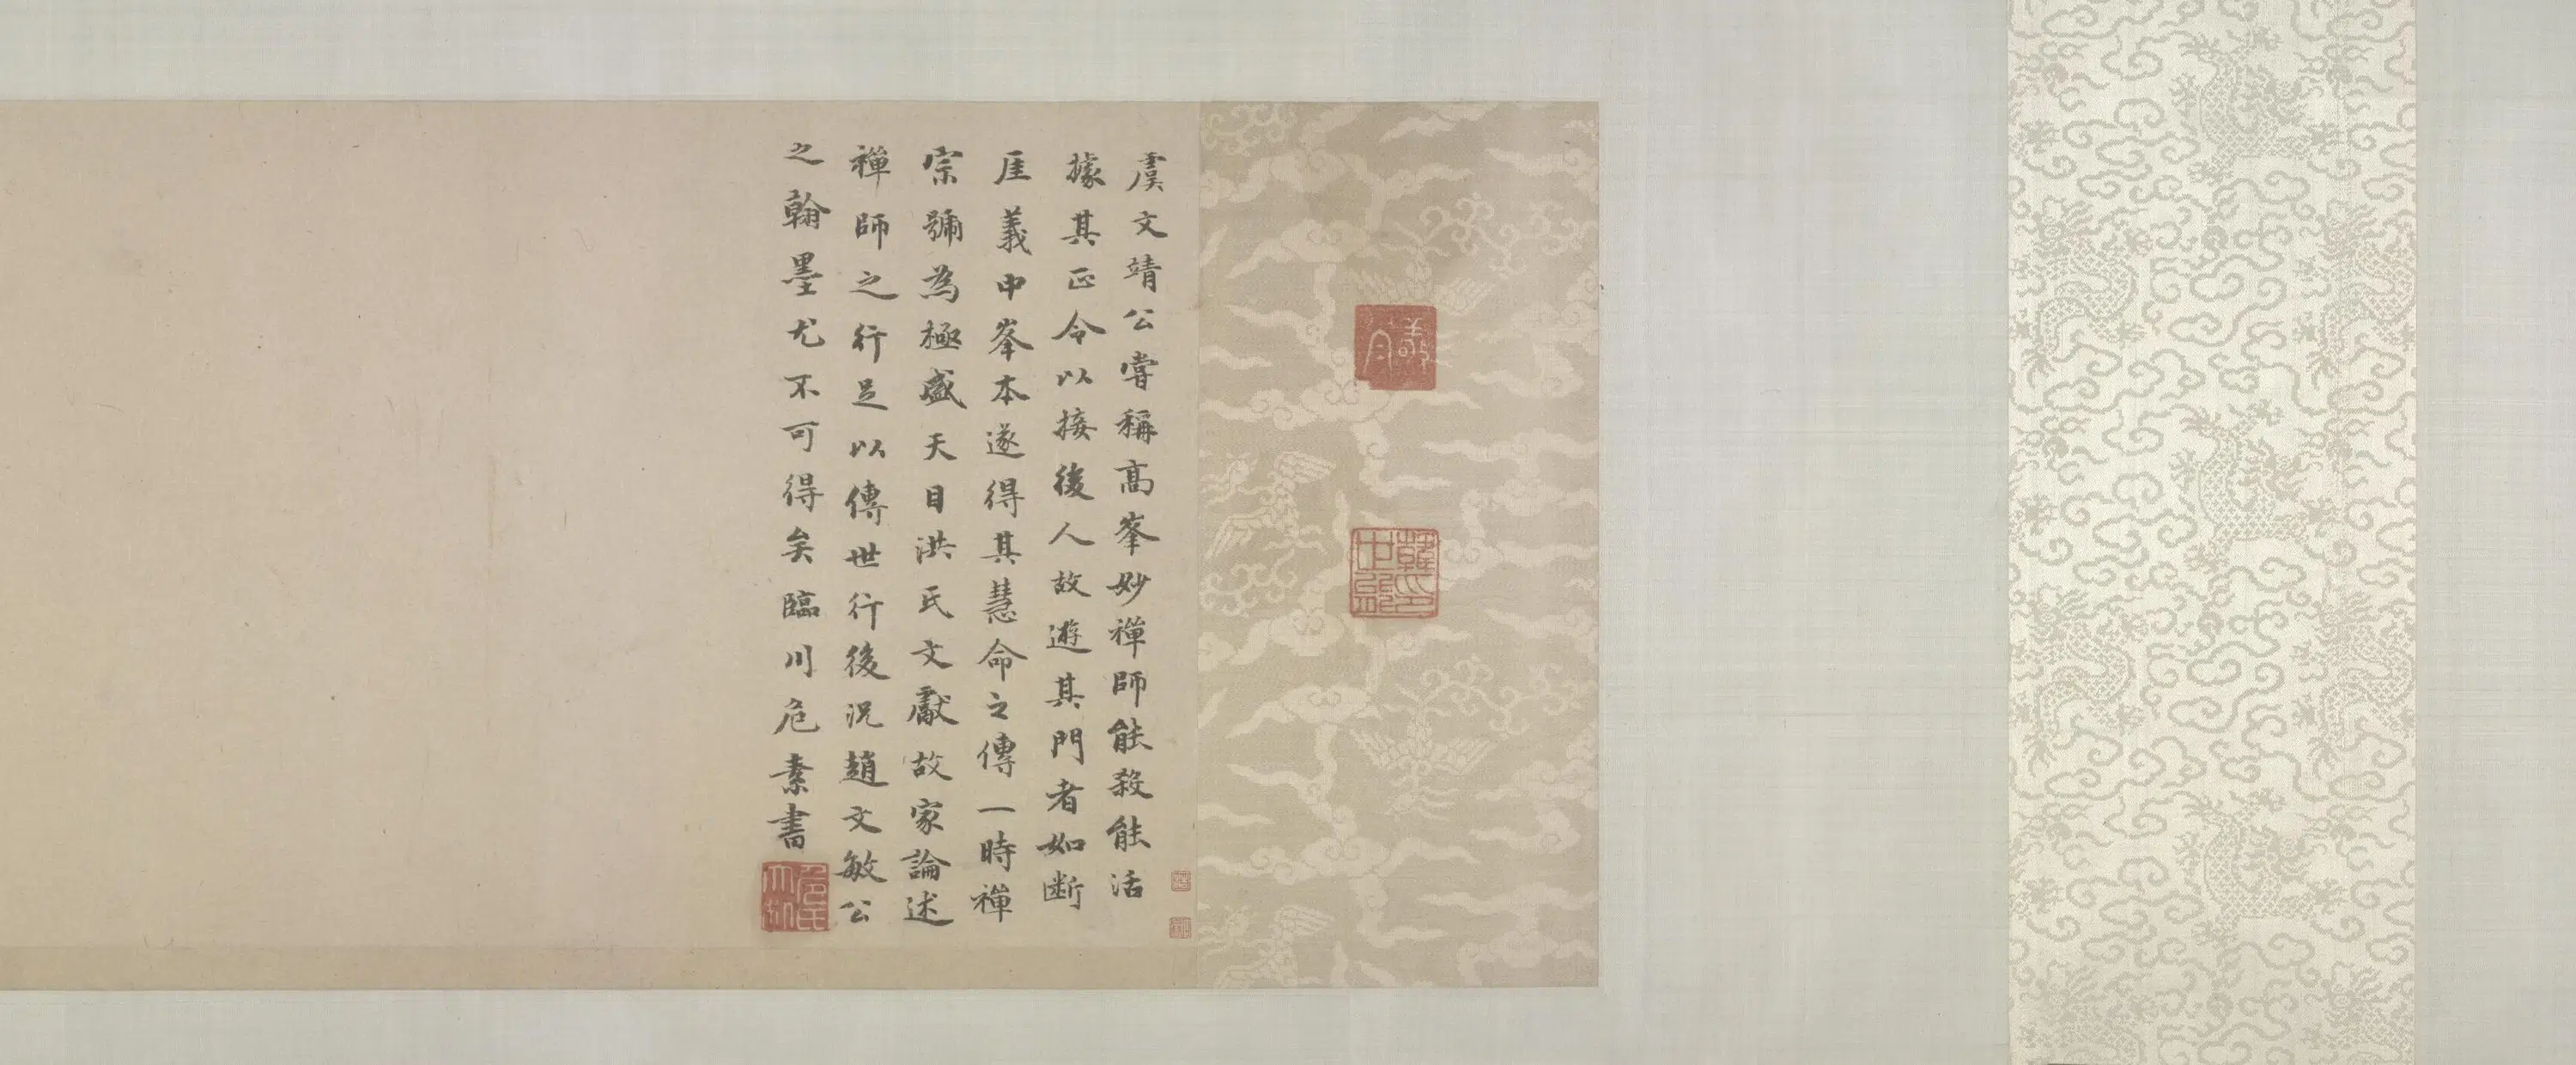 虞文靖公嘗稱高峯妙禪師能殺能活
據其正令以接後人故遊其門者如斷
厓義中峯本遂得其慧命之傳一時禪
宗號為極盛天目洪氏文獻故家論述
禪師之行足以傳世行後況趙文敏公
之翰墨尤不可得矣臨川危素書